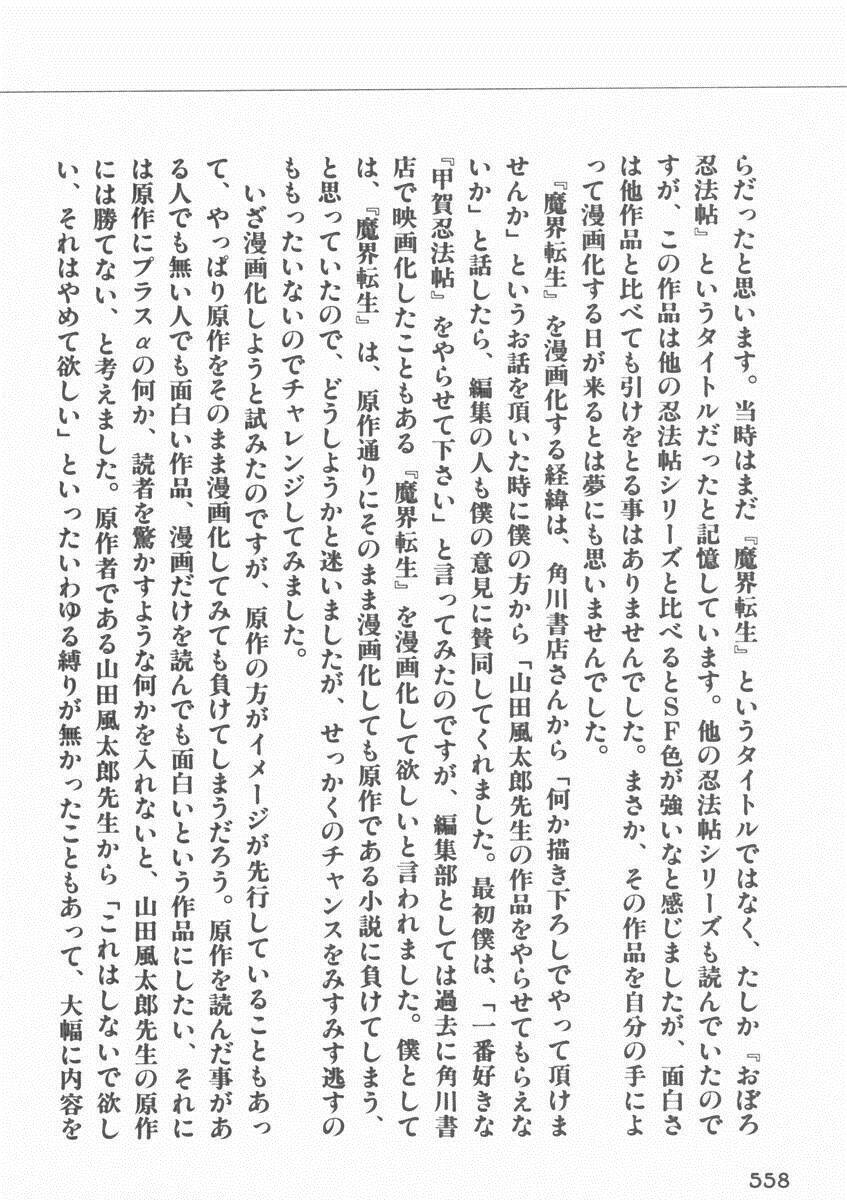 らだったと思います。当時はまだ『魔界転生』というタイトルではなく、たしか『おぼろ
忍法帖』というタイトルだったと記憶しています。他の忍法帖シリーズも読んでいたので
すが、この作品は他の忍法帖シリーズと比べるとSF色が強いなと感じましたが、面白さ
は他作品と比べても引けをとる事はありませんでした。まさか、その作品を自分の手によ
って漫画化する日が来るとは夢にも思いませんでした。
『魔界転生』を漫画化する経緯は、角川書店さんから「何か描き下ろしでやって頂けま
せんか」というお話を頂いた時に僕の方から「山田風太郎先生の作品をやらせてもらえな
いか」と話したら、編集の人も僕の意見に賛同してくれました。最初僕は、「一番好きな
『甲賀忍法帖』をやらせて下さい」と言ってみたのですが、編集部としては過去に角川書
店で映画化したこともある『魔界転生』を漫画化して欲しいと言われました。僕として
は、『魔界転生』は、原作通りにそのまま漫画化しても原作である小説に負けてしまう、
と思っていたので、どうしようかと迷いましたが、せっかくのチャンスをみすみす逃すの
ももったいないのでチャレンジしてみました。
いざ漫画化しようと試みたのですが、原作の方がイメージが先行していることもあっ
て、やっぱり原作をそのまま漫画化してみても負けてしまうだろう。原作を読んだ事があ
る人でも無い人でも面白い作品、漫画だけを読んでも面白いという作品にしたい、それに
は原作にプラスαの何か、読者を驚かすような何かを入れないと、山田風太郎先生の原作
には勝てない、と考えました。原作者である山田風太郎先生から「これはしないで欲し
い、それはやめて欲しい」といったいわゆる縛りが無かったこともあって、大幅に内容を
558